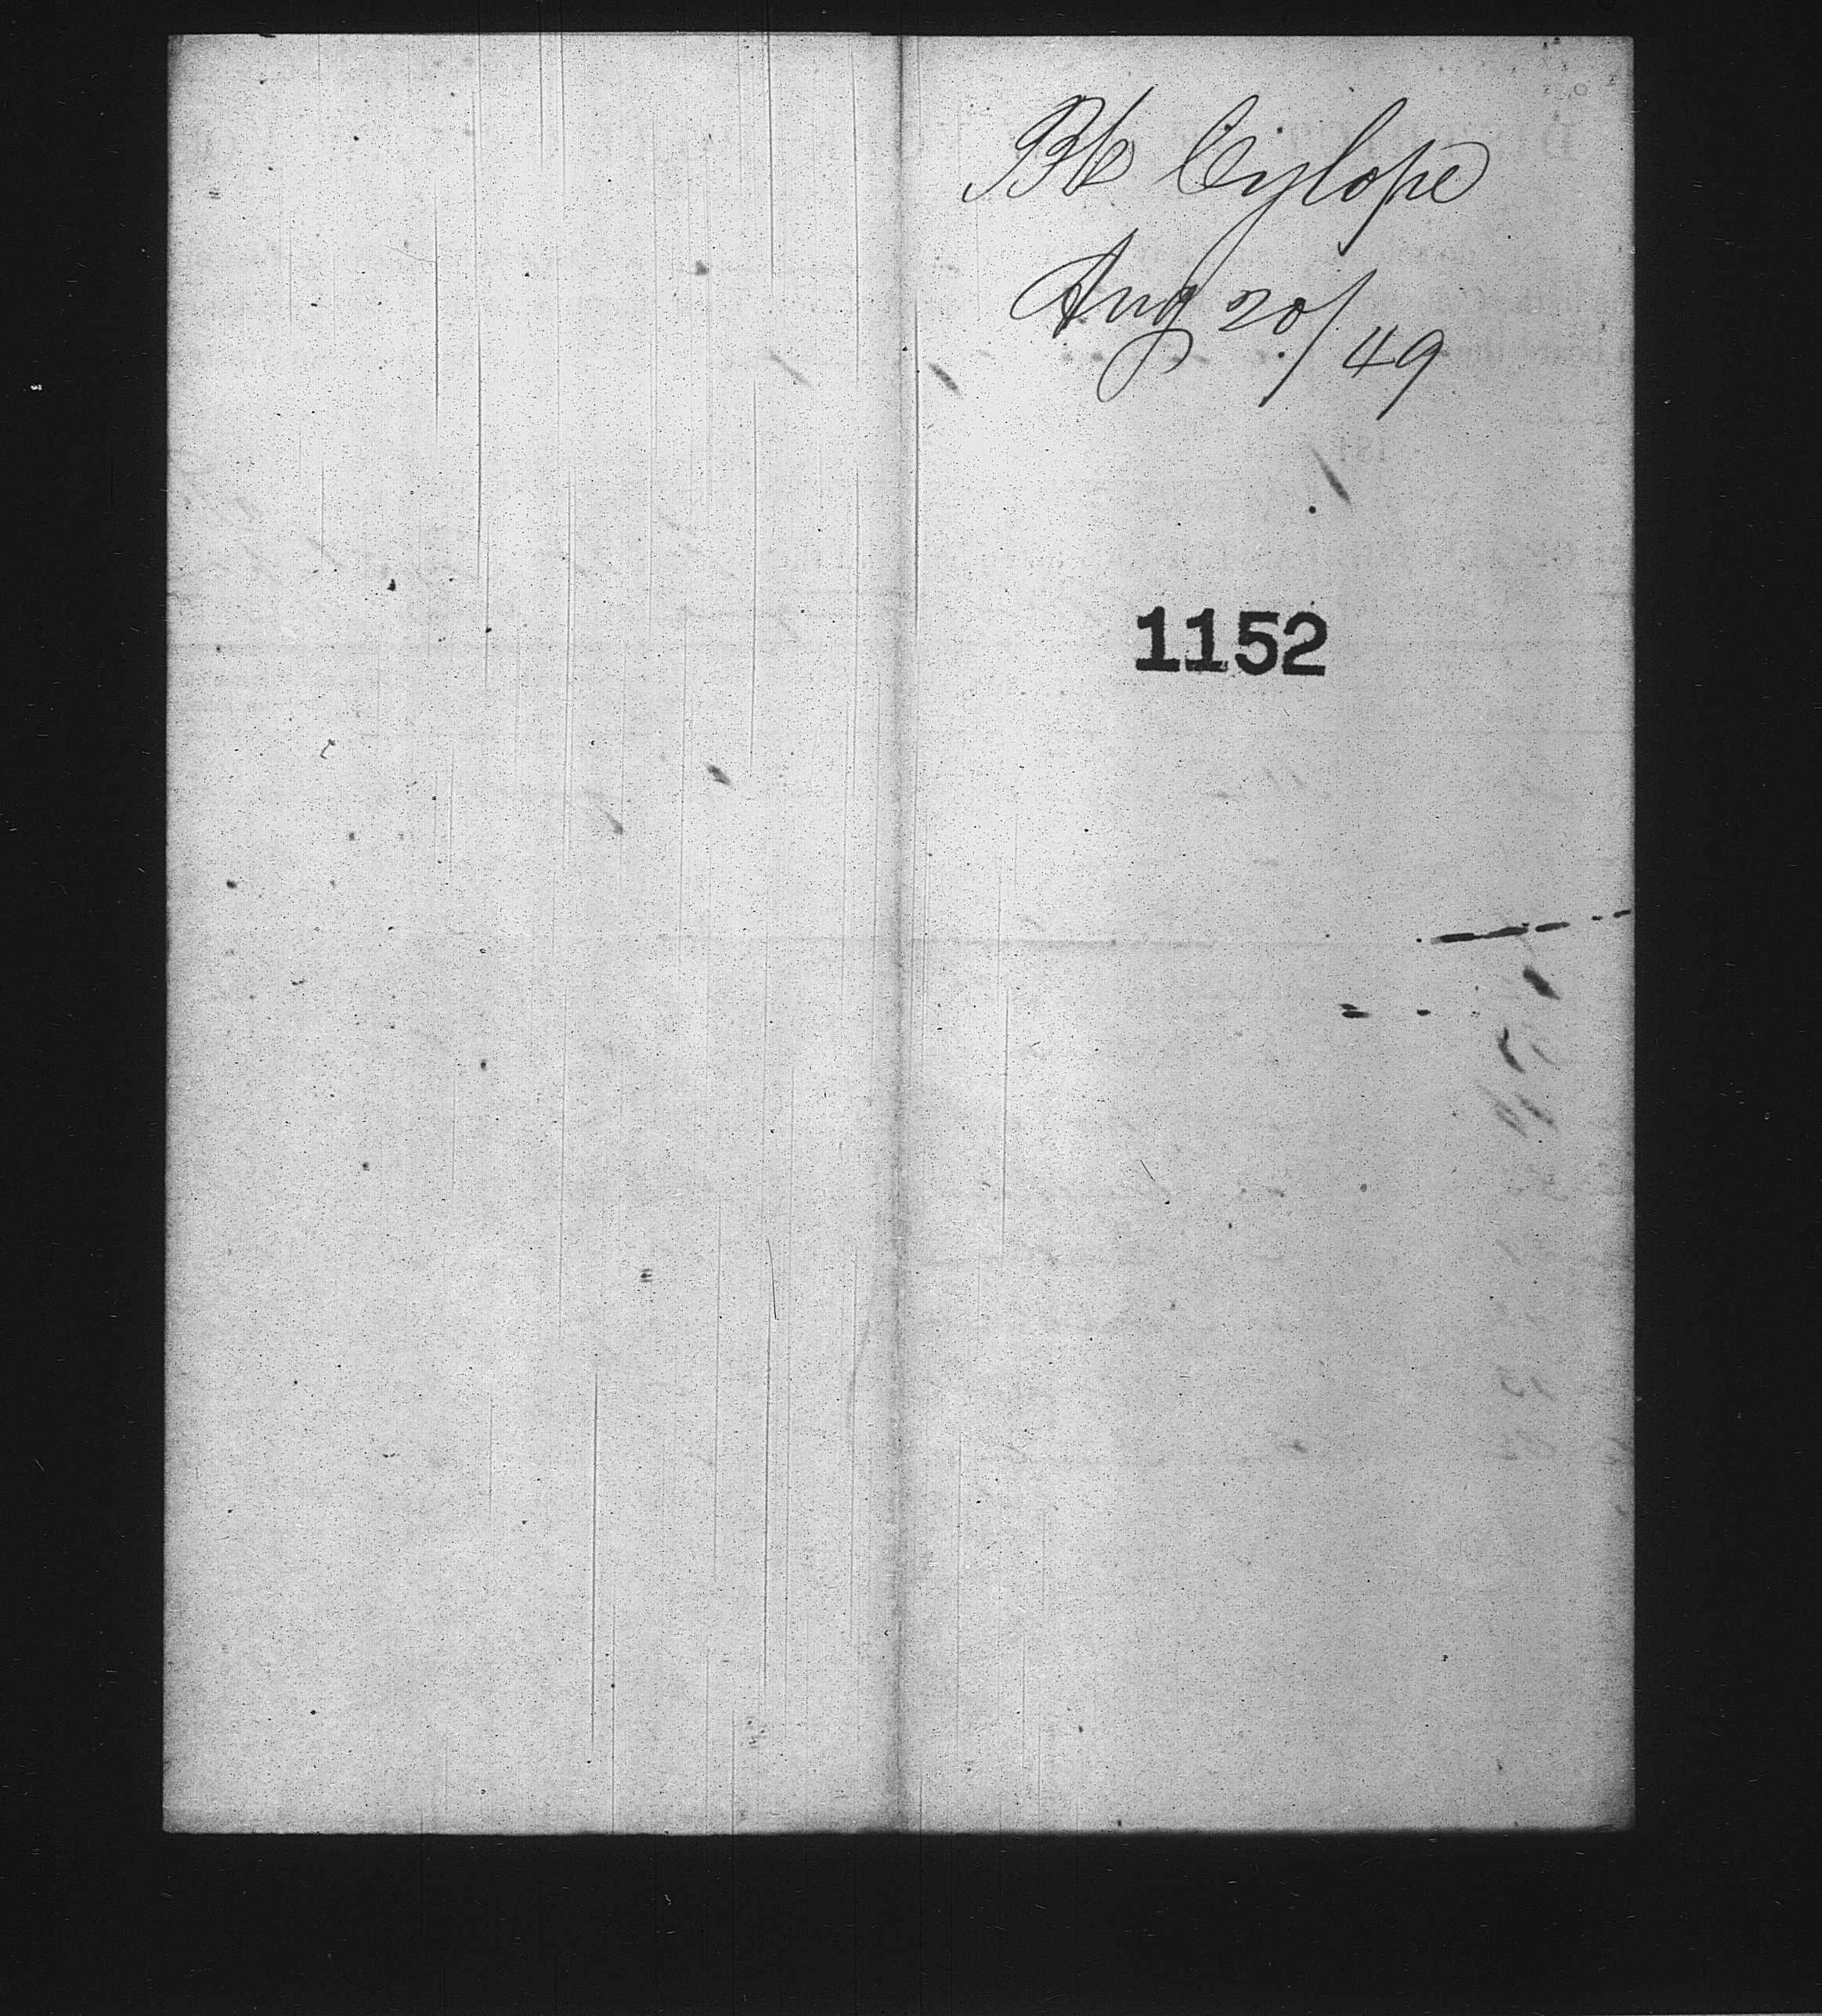 Bk Cylope
Aug 20/49
1152